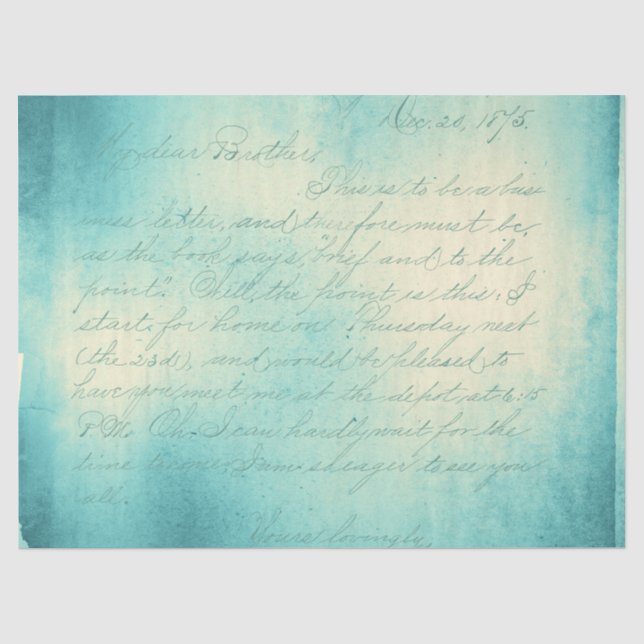 Dec. 20, 1875.
My dear Brother,
This is to be a busi
iness letter, and therefore must be,
as the book says, "brief and to the
point". Well, the point is this: I
start for home on Thursday next
(the 23d), and would be pleased to
have you meet me at the depot, at 6:15
P.M. Oh I can hardly wait for the
time to come, I am so eager to see you
all.
Yours lovingly,